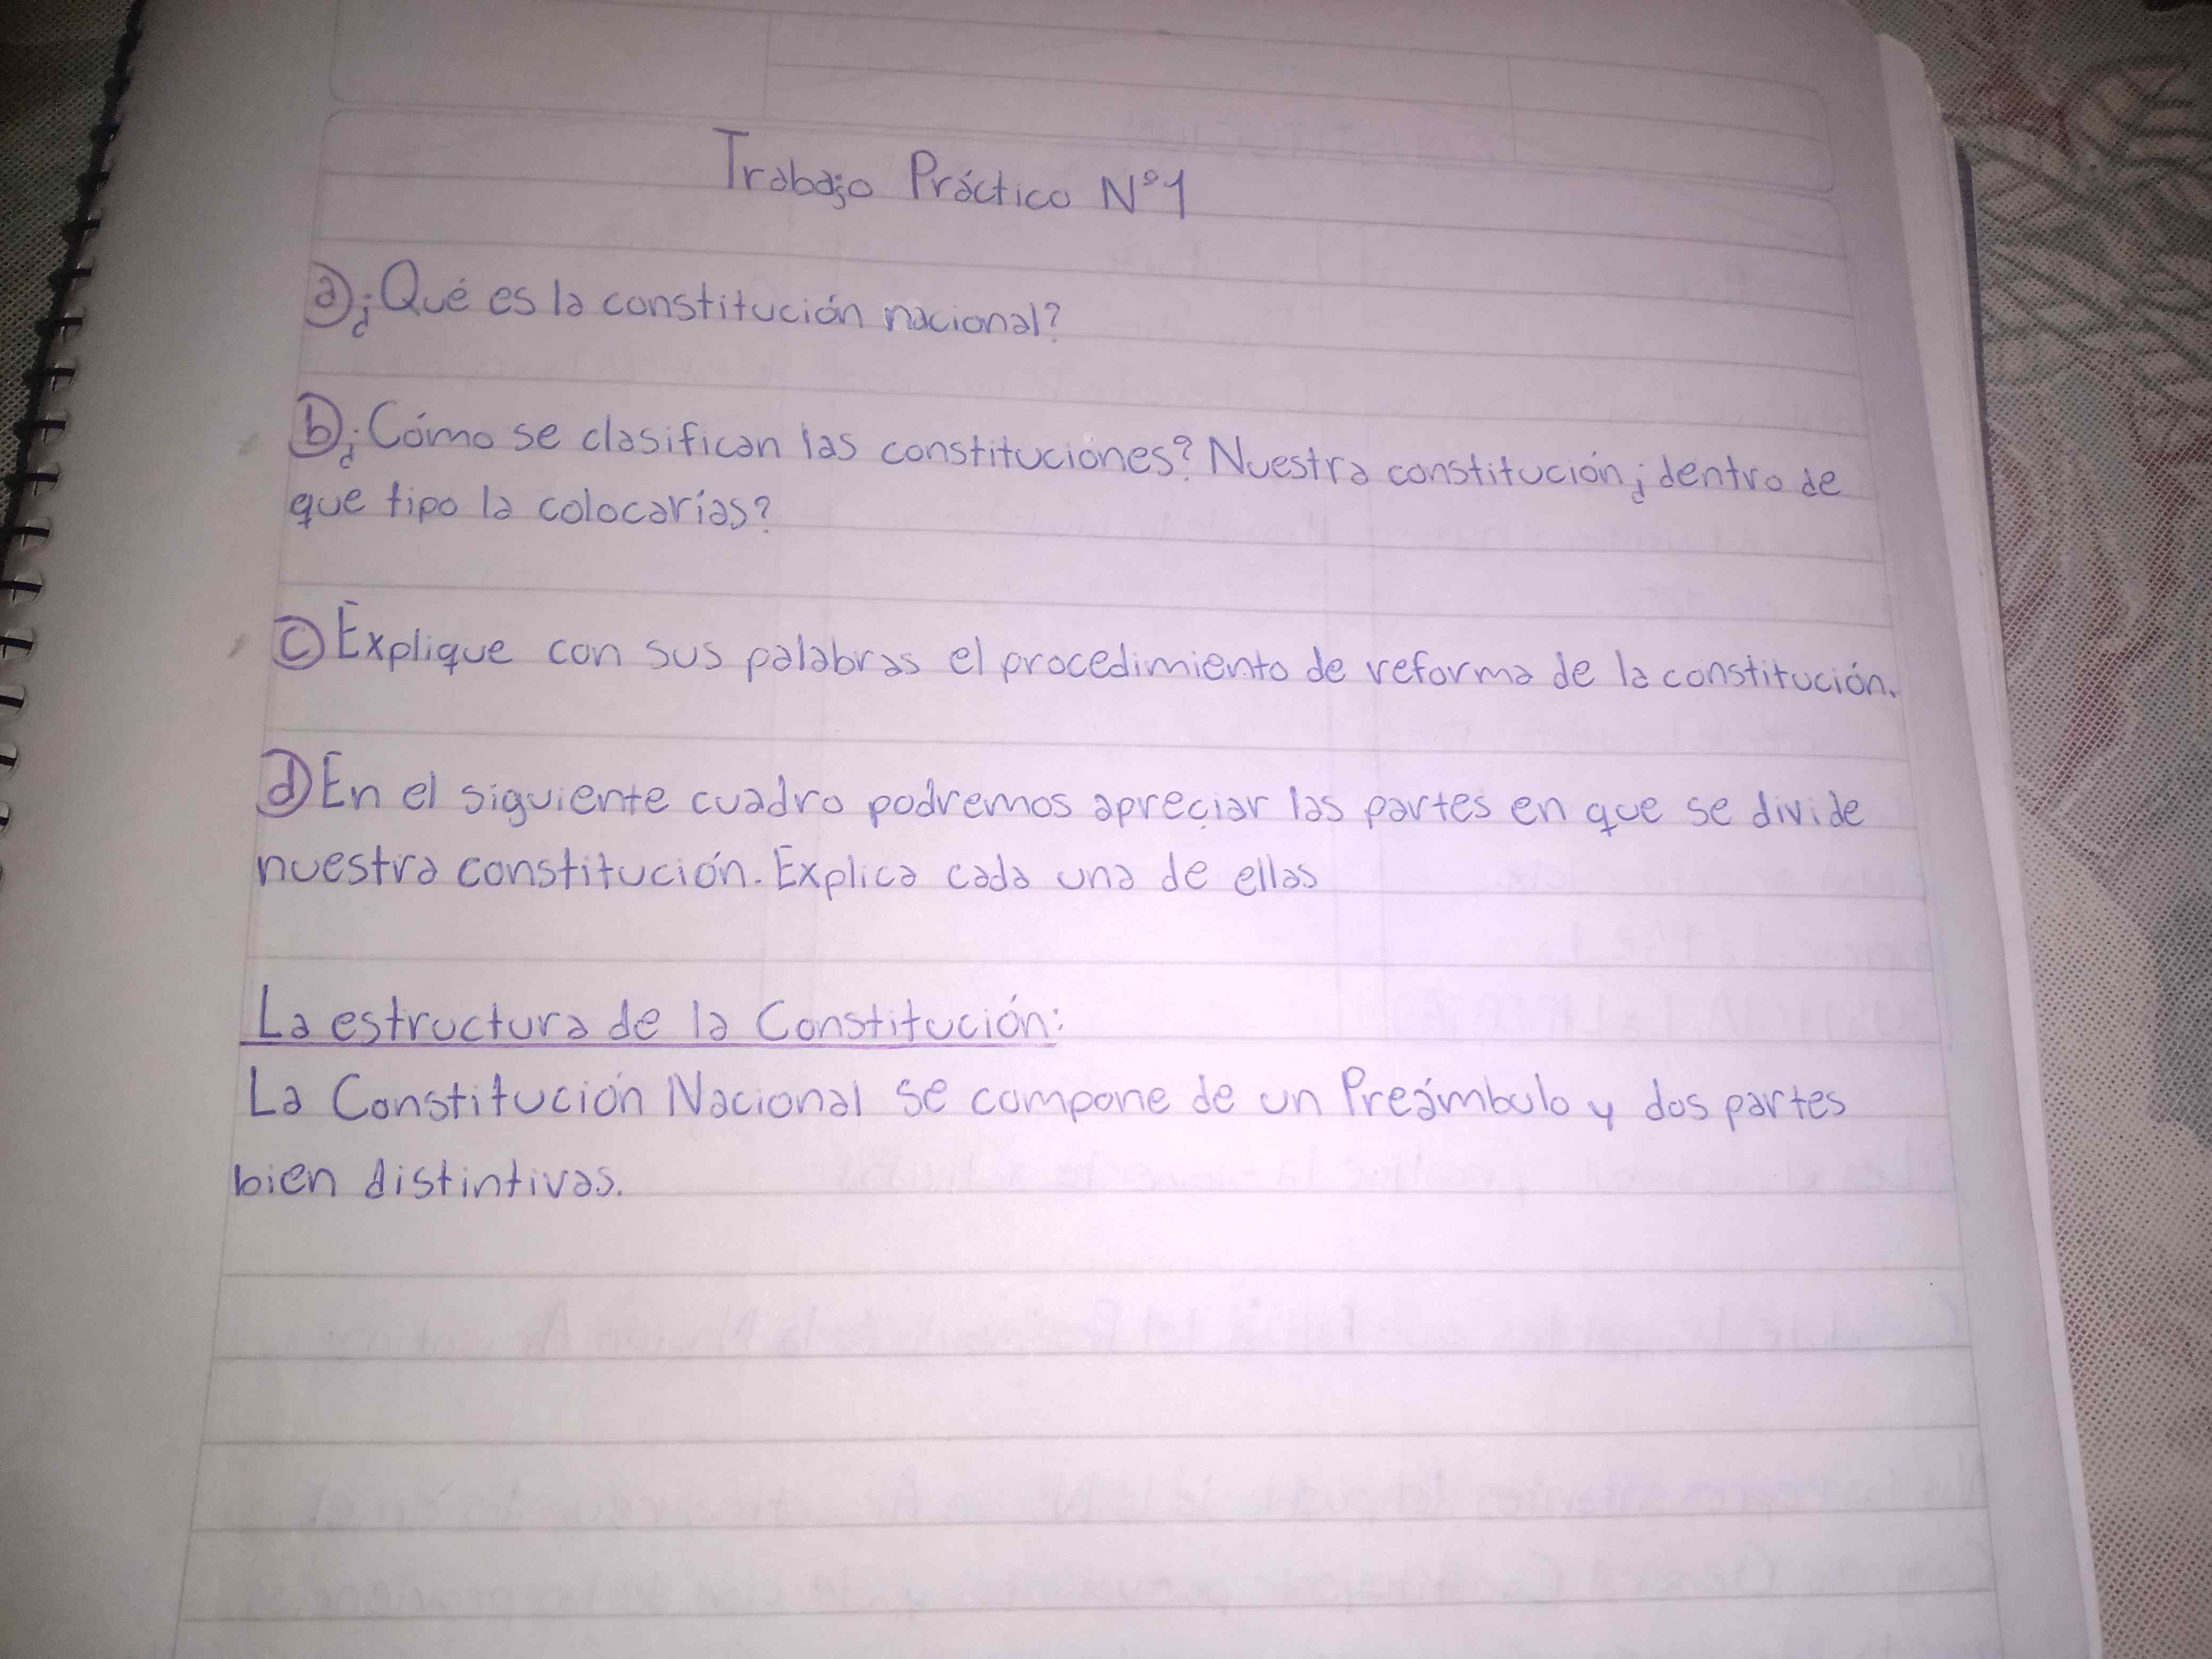 Trabajo Práctico N°1
a) ¿Qué es la constitución nacional?
b) ¿Cómo se clasifican las constituciónes? Nuestra constitución ¿dentro de
que tipo la colocarías?
c) Explique con sus palabras el procedimiento de reforma de la constitución.
d) En el siguiente cuadro podremos apreciar las partes en que se divide
nuestra constitución. Explica cada una de ellas
La estructura de la Constitución:
La Constitución Nacional se compone de un Preámbulo y dos partes
bien distintivas.